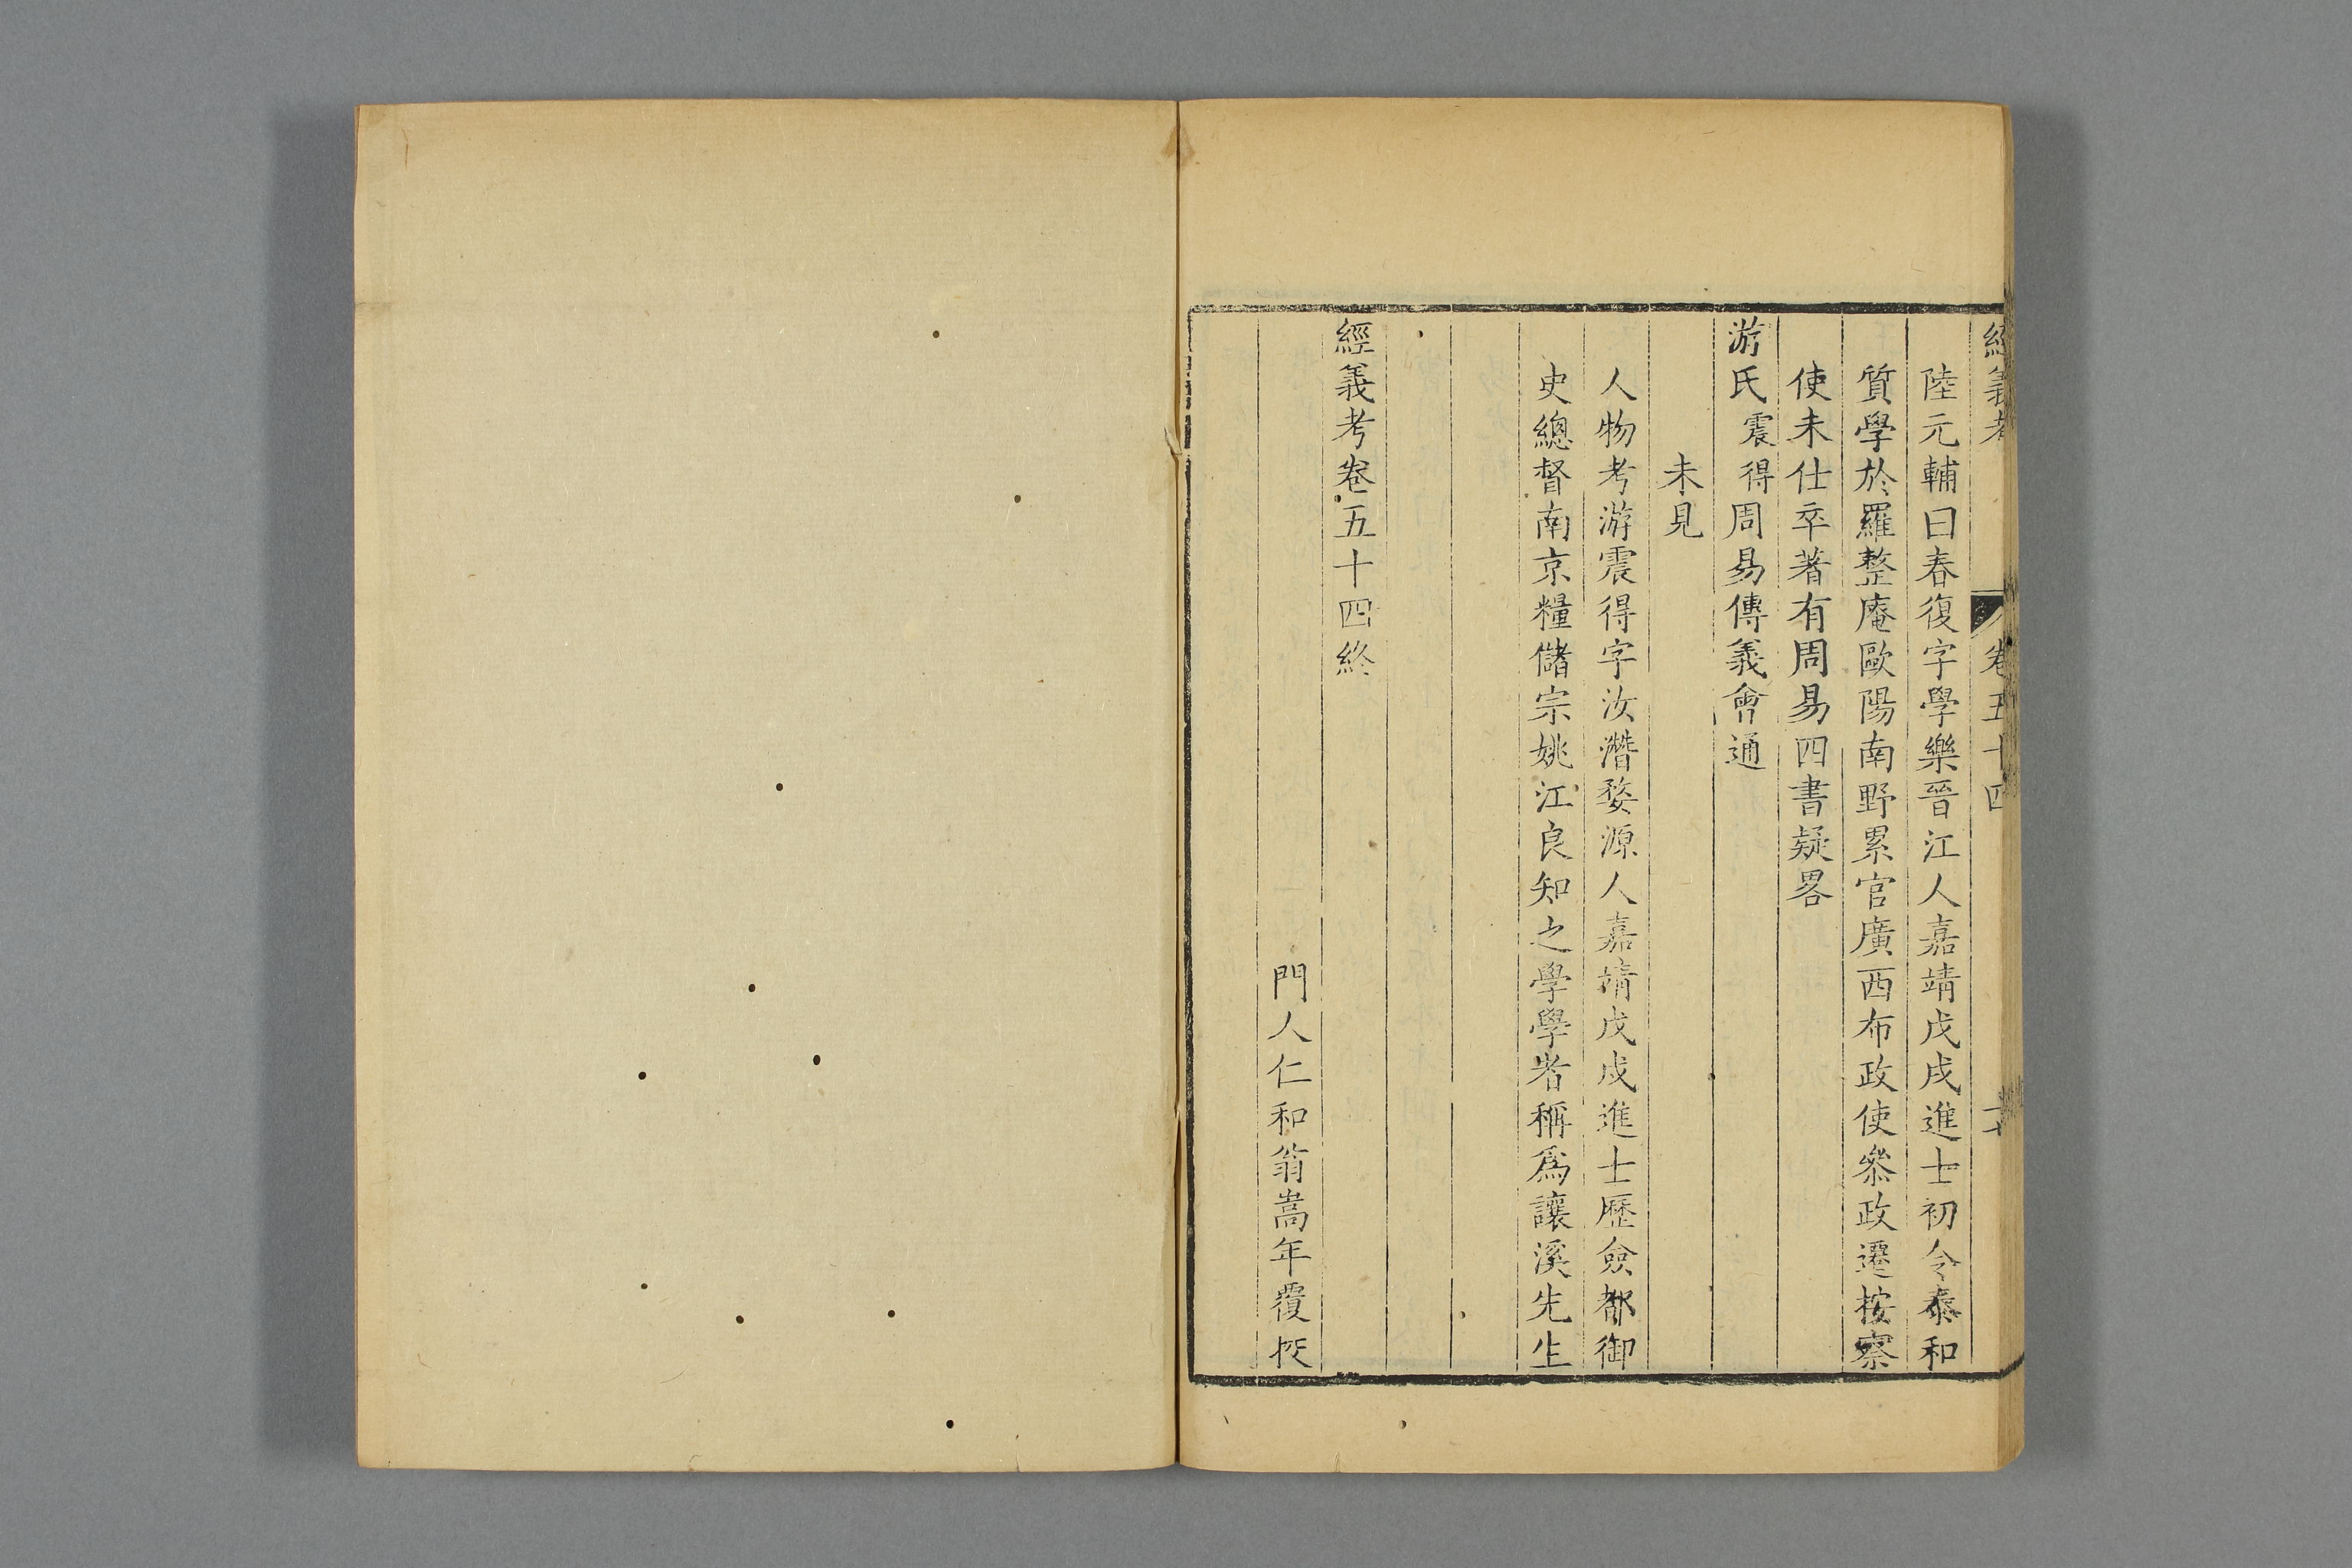 經義考 卷五十四
陸元輔曰春復字學樂晉江人嘉靖戊戌進士初令泰和
質學於羅整庵歐陽南野累官廣西布政使叅政遷按察
使未仕卒著有周易四書疑畧
游氏震得周易傳義會通
未見
人物考游震得字汝潛婺源人嘉靖戊戌進士歷僉都御
史總督南京糧儲宗姚江良知之學學者稱爲讓溪先生
經義考卷五十四終
門人仁和翁嵩年覆挍